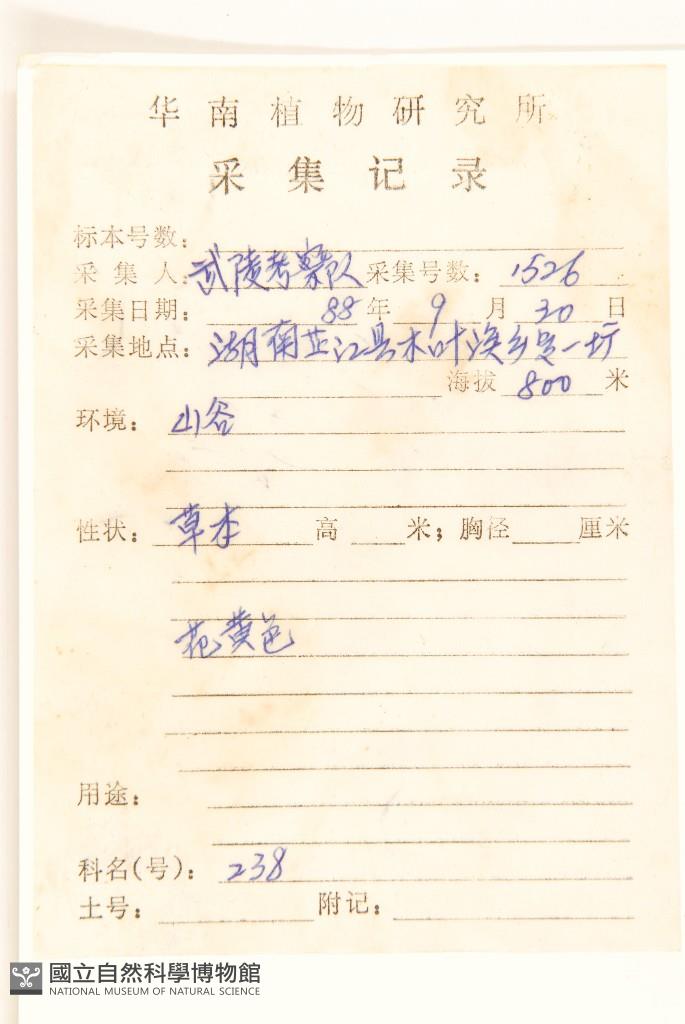 华南植物研究所
采集记录
标本号数：
采集人：武陵考察队 采集号数：1526
采集日期： 88 年 9 月 30 日
采集地点：湖南芷江县木叶溪乡 一坊
海拔 800 米
环境：山谷
性状：草本 高 米；胸径 厘米
花黄色
用途：
科名(号)：238
土号： 附记：
國立自然科學博物館
NATIONAL MUSEUM OF NATURAL SCIENCE